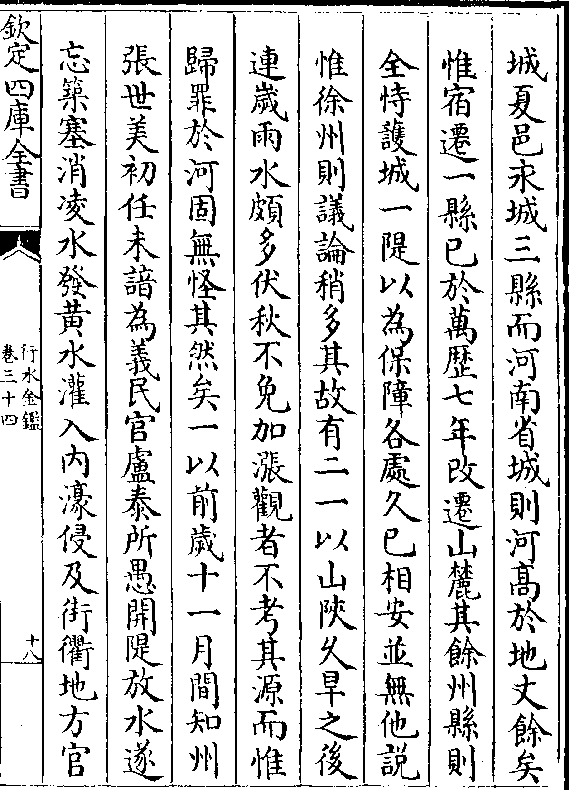 城夏邑永城三縣而河南省城則河髙於地丈餘矣
惟宿遷一縣已於萬歴七年改遷山麓其餘州縣則
全恃護城一隄以為保障各處久已相安並無他説
惟徐州則議論稍多其故有二一以山陜久旱之後
連歲雨水頗多伏秋不免加漲觀者不考其源而惟
歸罪於河固無怪其然矣一以前歲十一月間知州
張世美初任未諳為義民官盧泰所愚開隄放水遂
忘築塞消凌水發黄水灌入内濠侵及街衢地方官
欽定四庫全書
行水金鑑
卷三十四
十八